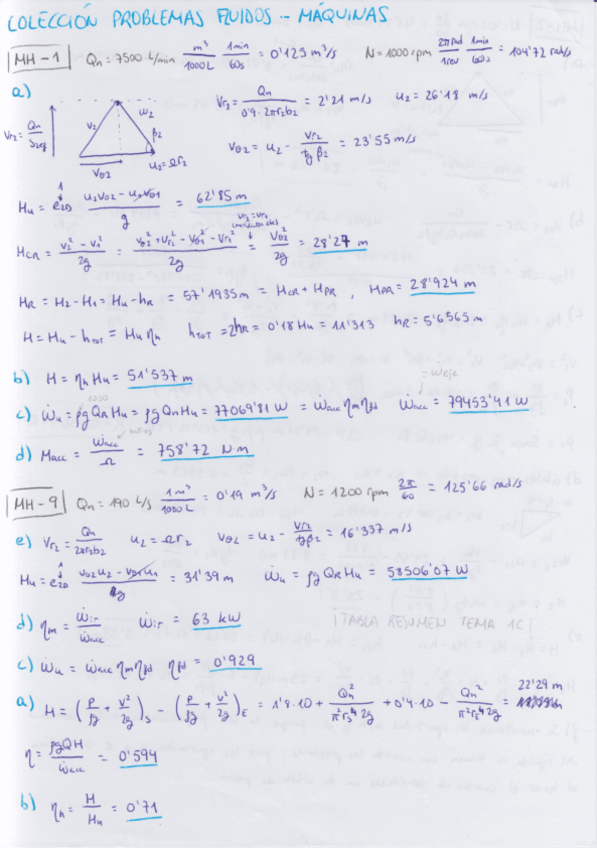 COLECCIÓN PROBLEMAS FLUIDOS -- MÁQUINAS
MH-1 Qn = 7500 L/min m³/1000L 1min/60s = 0'125 m³/s N = 1000 rpm 2π rad/1rev 1min/60s = 104'72 rad/s
a)
Vr2 = Qn/(0'9·2πr2b2) = 2'21 m/s u2 = 26'18 m/s
Vr2 = Qn/S2eq v2 w2 β2
Vθ2 = u2 - Vr2/tg β2 = 23'55 m/s
Vθ2 u2 = Ωr2
Hu = e2D (u2Vθ2 - u1Vθ1)/g = 62'85 m
HCR = (V2² - V1²)/2g = (Vθ2² + Vr2² - Vθ1² - Vr1²)/2g = Vθ2²/2g = 28'27 m
HR = H2 - H1 = Hu - hR = 57'1935 m = HCR + HPR , HPR = 28'924 m
H = Hu - hTOT = Hu ηh hTOT = 2hR = 0'18 Hu = 11'313 hR = 5'6565 m
b) H = ηh Hu = 51'537 m
= Weje
c) Ẇu = ρg QR Hu = ρg Qn Hu = 77069'81 W = Ẇacc ηm ηfd Ẇacc = 79453'41 W
d) Macc = Ẇacc/Ω = 758'72 N·m
MH-9 Qn = 190 L/s 1m³/1000L = 0'19 m³/s N = 1200 rpm 2π/60 = 125'66 rad/s
e) Vr2 = Qn/2πr2b2 u2 = Ωr2 Vθ2 = u2 - Vr2/tgβ2 = 16'337 m/s
Hu = e2D (Vθ2u2 - Vθ1u1)/g = 31'39 m Ẇu = ρg QR Hu = 58506'07 W
d) ηm = Ẇir/Ẇacc Ẇir = 63 kW ¡TABLA RESUMEN TEMA 1C!
c) Ẇu = Ẇacc ηm ηfd ηfd = 0'929
a) H = (P/ρg + V²/2g)S - (P/ρg + V²/2g)E = 1'8·10 + Qn²/π²rs⁴2g + 0'4·10 - Qn²/π²rE⁴2g = 22'29 m
η = ρgQH/Ẇacc = 0'594
b) ηh = H/Hu = 0'71